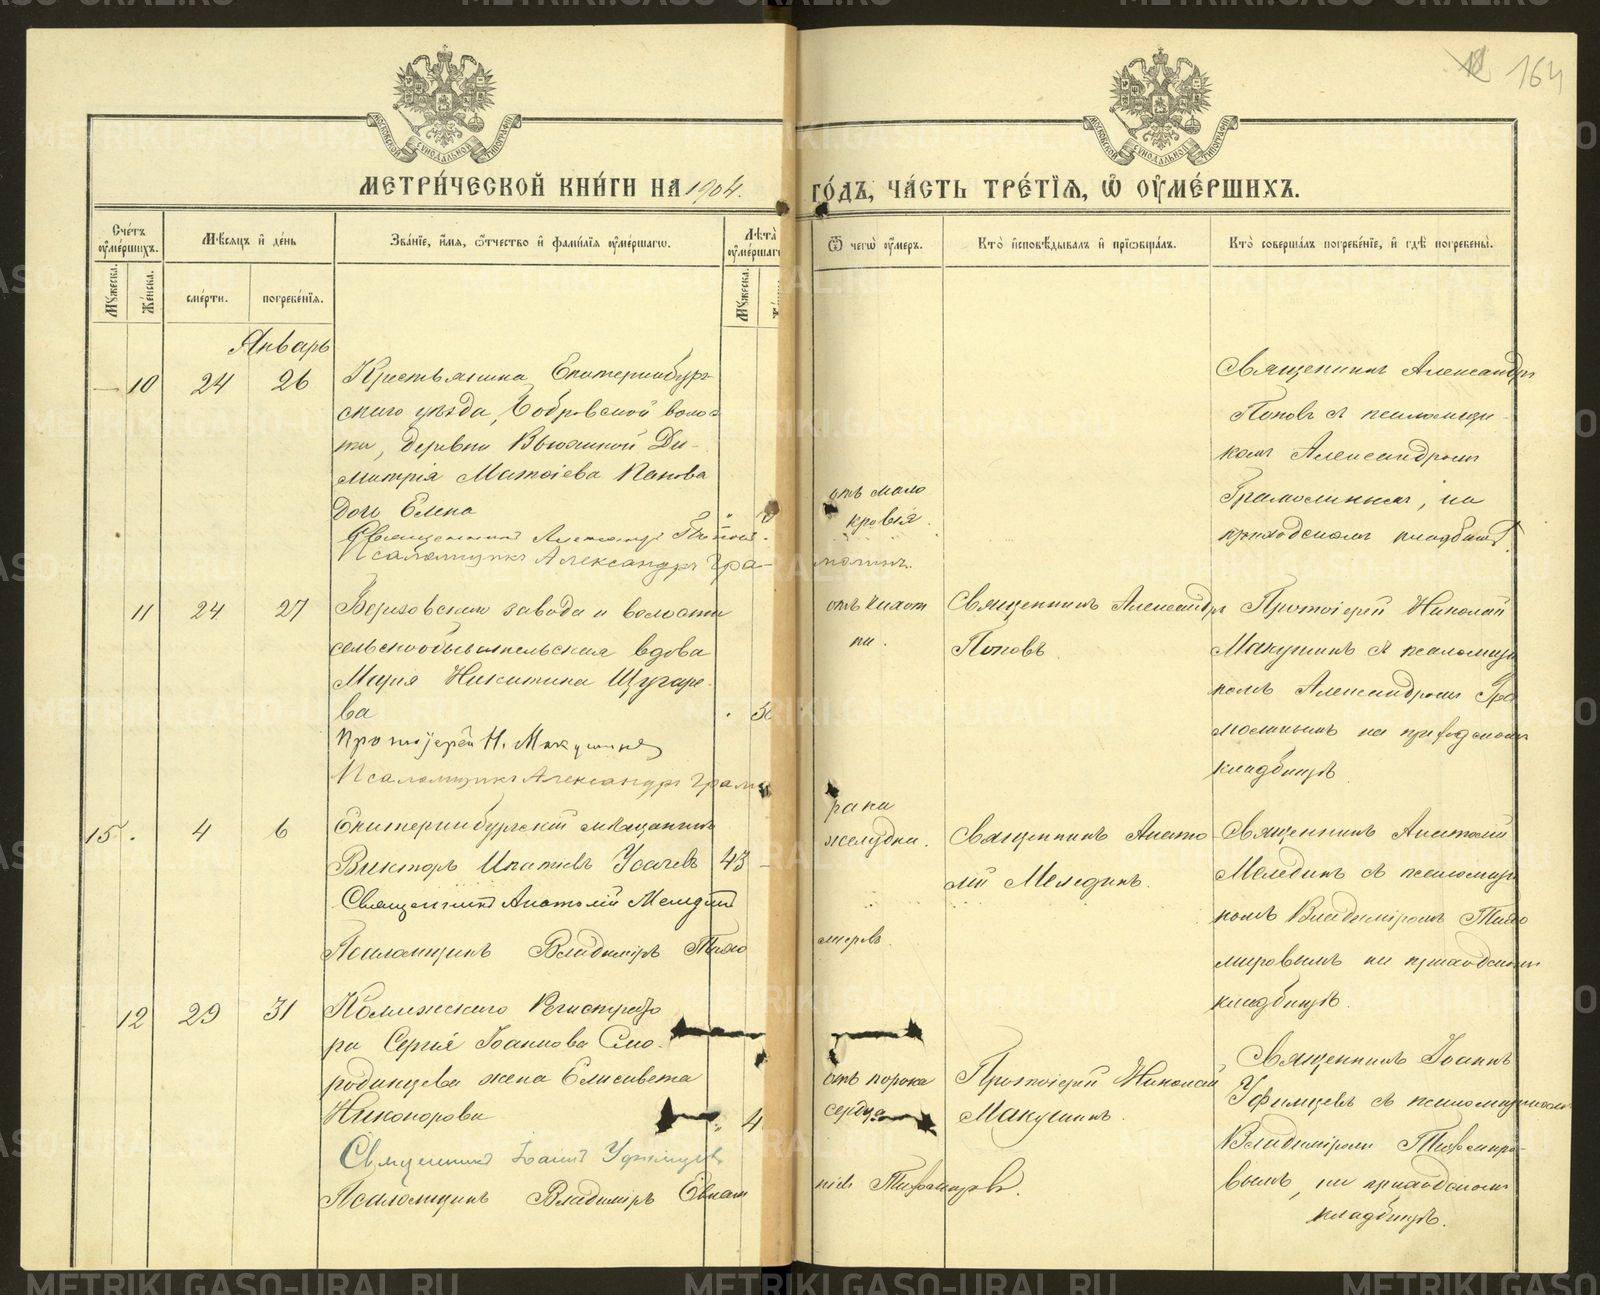 164
МОСКОВСКОЙ СѴНОДАЛЬНОЙ ТИПОГРАФІИ
МОСКОВСКОЙ СѴНОДАЛЬНОЙ ТИПОГРАФІИ
МЕТРИ́ЧЕСКОЙ КНИ́ГИ НА 1904.
ГО́ДЪ, ЧА́СТЬ ТРЕ́ТІѦ, Ѡ ОУ҆МЕ́РШИХЪ.
Счётъ оу҆ме́ршихъ.
Мѣсяцъ и҆ де́нь
Зва́нїе, и҆́мя, ѻ҆́тчество и҆ фами́лїя оу҆ме́ршагѡ.
Лѣта̀ оу҆ме́ршаг
Ѿ чегѡ̀ оу҆́меръ.
Кто̀ и҆сповѣ́дывалъ и҆ прїѡбща́лъ.
Кто̀ соверша́лъ погребе́нїе, и҆ гдѣ̀ погребены̀.
Мꙋ́жеска.
Же́нска.
сме́рти.
погребе́нїя.
Мꙋ́жеска.
Январь
10 24 26
Крестьянина Екатеринбург-
скаго уѣзда, Бобровской волос-
ти, деревни Вьюхиной Ди-
митрія Матѳіева Панова
дочь Елена
Священникъ Александръ Поповъ.
Псаломщикъ Александръ Гра-
отъ мало
кровія.
молинъ.
Священникъ Александръ
Поповъ съ псаломщи-
комъ Александромъ
Грамолинымъ, на
приходскомъ кладбищѣ.
11 24 27
завода и волости
сельскообывательская вдова
Марія Никитина Щугаре-
ва
Протоіерей Н. Макушинъ
Псаломщикъ Александръ Грамо
отъ чахот
ки.
Священникъ Александръ
Поповъ.
Протоіерей Николай
Макушинъ съ псаломщи
комъ Александромъ Гра
молинымъ на приходскомъ
кладбищѣ.
15. 4 6
Екатеринбургскій мѣщанинъ
Викторъ Ипатіевъ Усачевъ 43 -
Священникъ Анатолій Меледин
Псаломщикъ Владиміръ Тихо
рака
желудка.
мировъ.
Священникъ Анато
лій Меледин.
Священникъ Анатолій
Мелединъ съ псаломщи
комъ Владиміромъ Тихо
мировымъ на приходскомъ
кладбищѣ.
12 29 31
Коллежскаго Регистрато
ра Сергія Іоаннова Смо-
родинцева жена Елисавета
Никонорова 4
Священникъ Іоаннъ Уфимцевъ
Псаломщикъ Владиміръ Евлам
отъ порока
сердца
піевъ Тихомировъ.
Протоіерей Николай
Макушинъ.
Священникъ Іоаннъ
Уфимцевъ съ псаломщикомъ
Владиміромъ Тихомиро-
вымъ, на приходскомъ
кладбищѣ.
METRIKI.GASO-URAL.RU